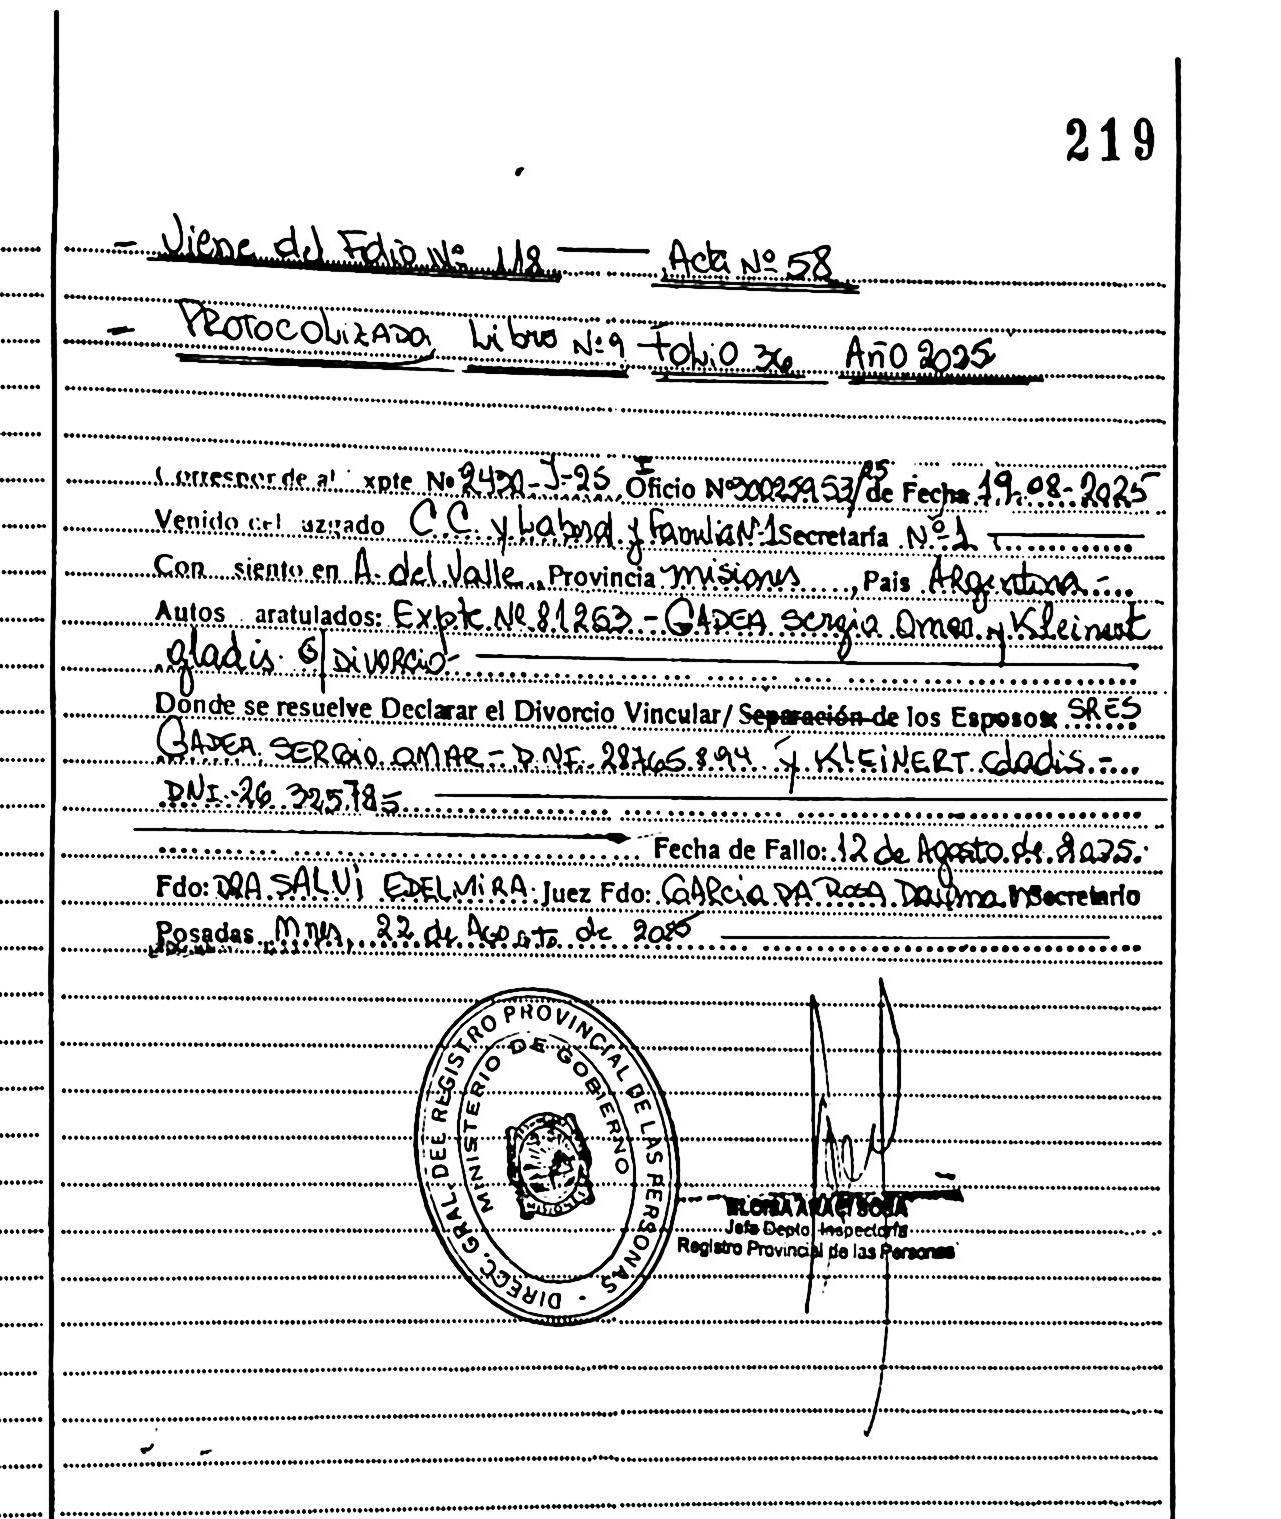 219
- Viene del Folio Nº 118 — Acta Nº 58
- PROTOCOLIZADA Libro Nº 9 FOLIO 36 AÑO 2025
Corresponde al xpte Nº 2430-J-25 Oficio Nº 30025953/25 de Fecha 19-08-2025
Venido del uzgado C.C. y Laboral y Familia Nº 1 Secretaría Nº 1
Con siento en A. del Valle, Provincia Misiones, Pais Argentina -
Autos aratulados: Expte Nº 81263 - GADEA Sergio Omar y Kleinert
gladis S/ DIVORCIO -
Donde se resuelve Declarar el Divorcio Vincular/ Separación de los Esposos SRES
GADEA SERGIO OMAR - DNI 28.765.894 y KLEINERT Gladis -
DNI 26.325.785
Fecha de Fallo: 12 de Agosto de 2025.
Fdo: DRA SALVI EDELMIRA Juez Fdo: GARCIA DA ROSA Secretario
Posadas Mnes, 22 de Agosto de 2025
DIRECC. GRAL. DEL REGISTRO PROVINCIAL DE LAS PERSONAS
MINISTERIO DE GOBIERNO
SOSA
Jefe Depto. Inspectoría
Registro Provincial de las Personas